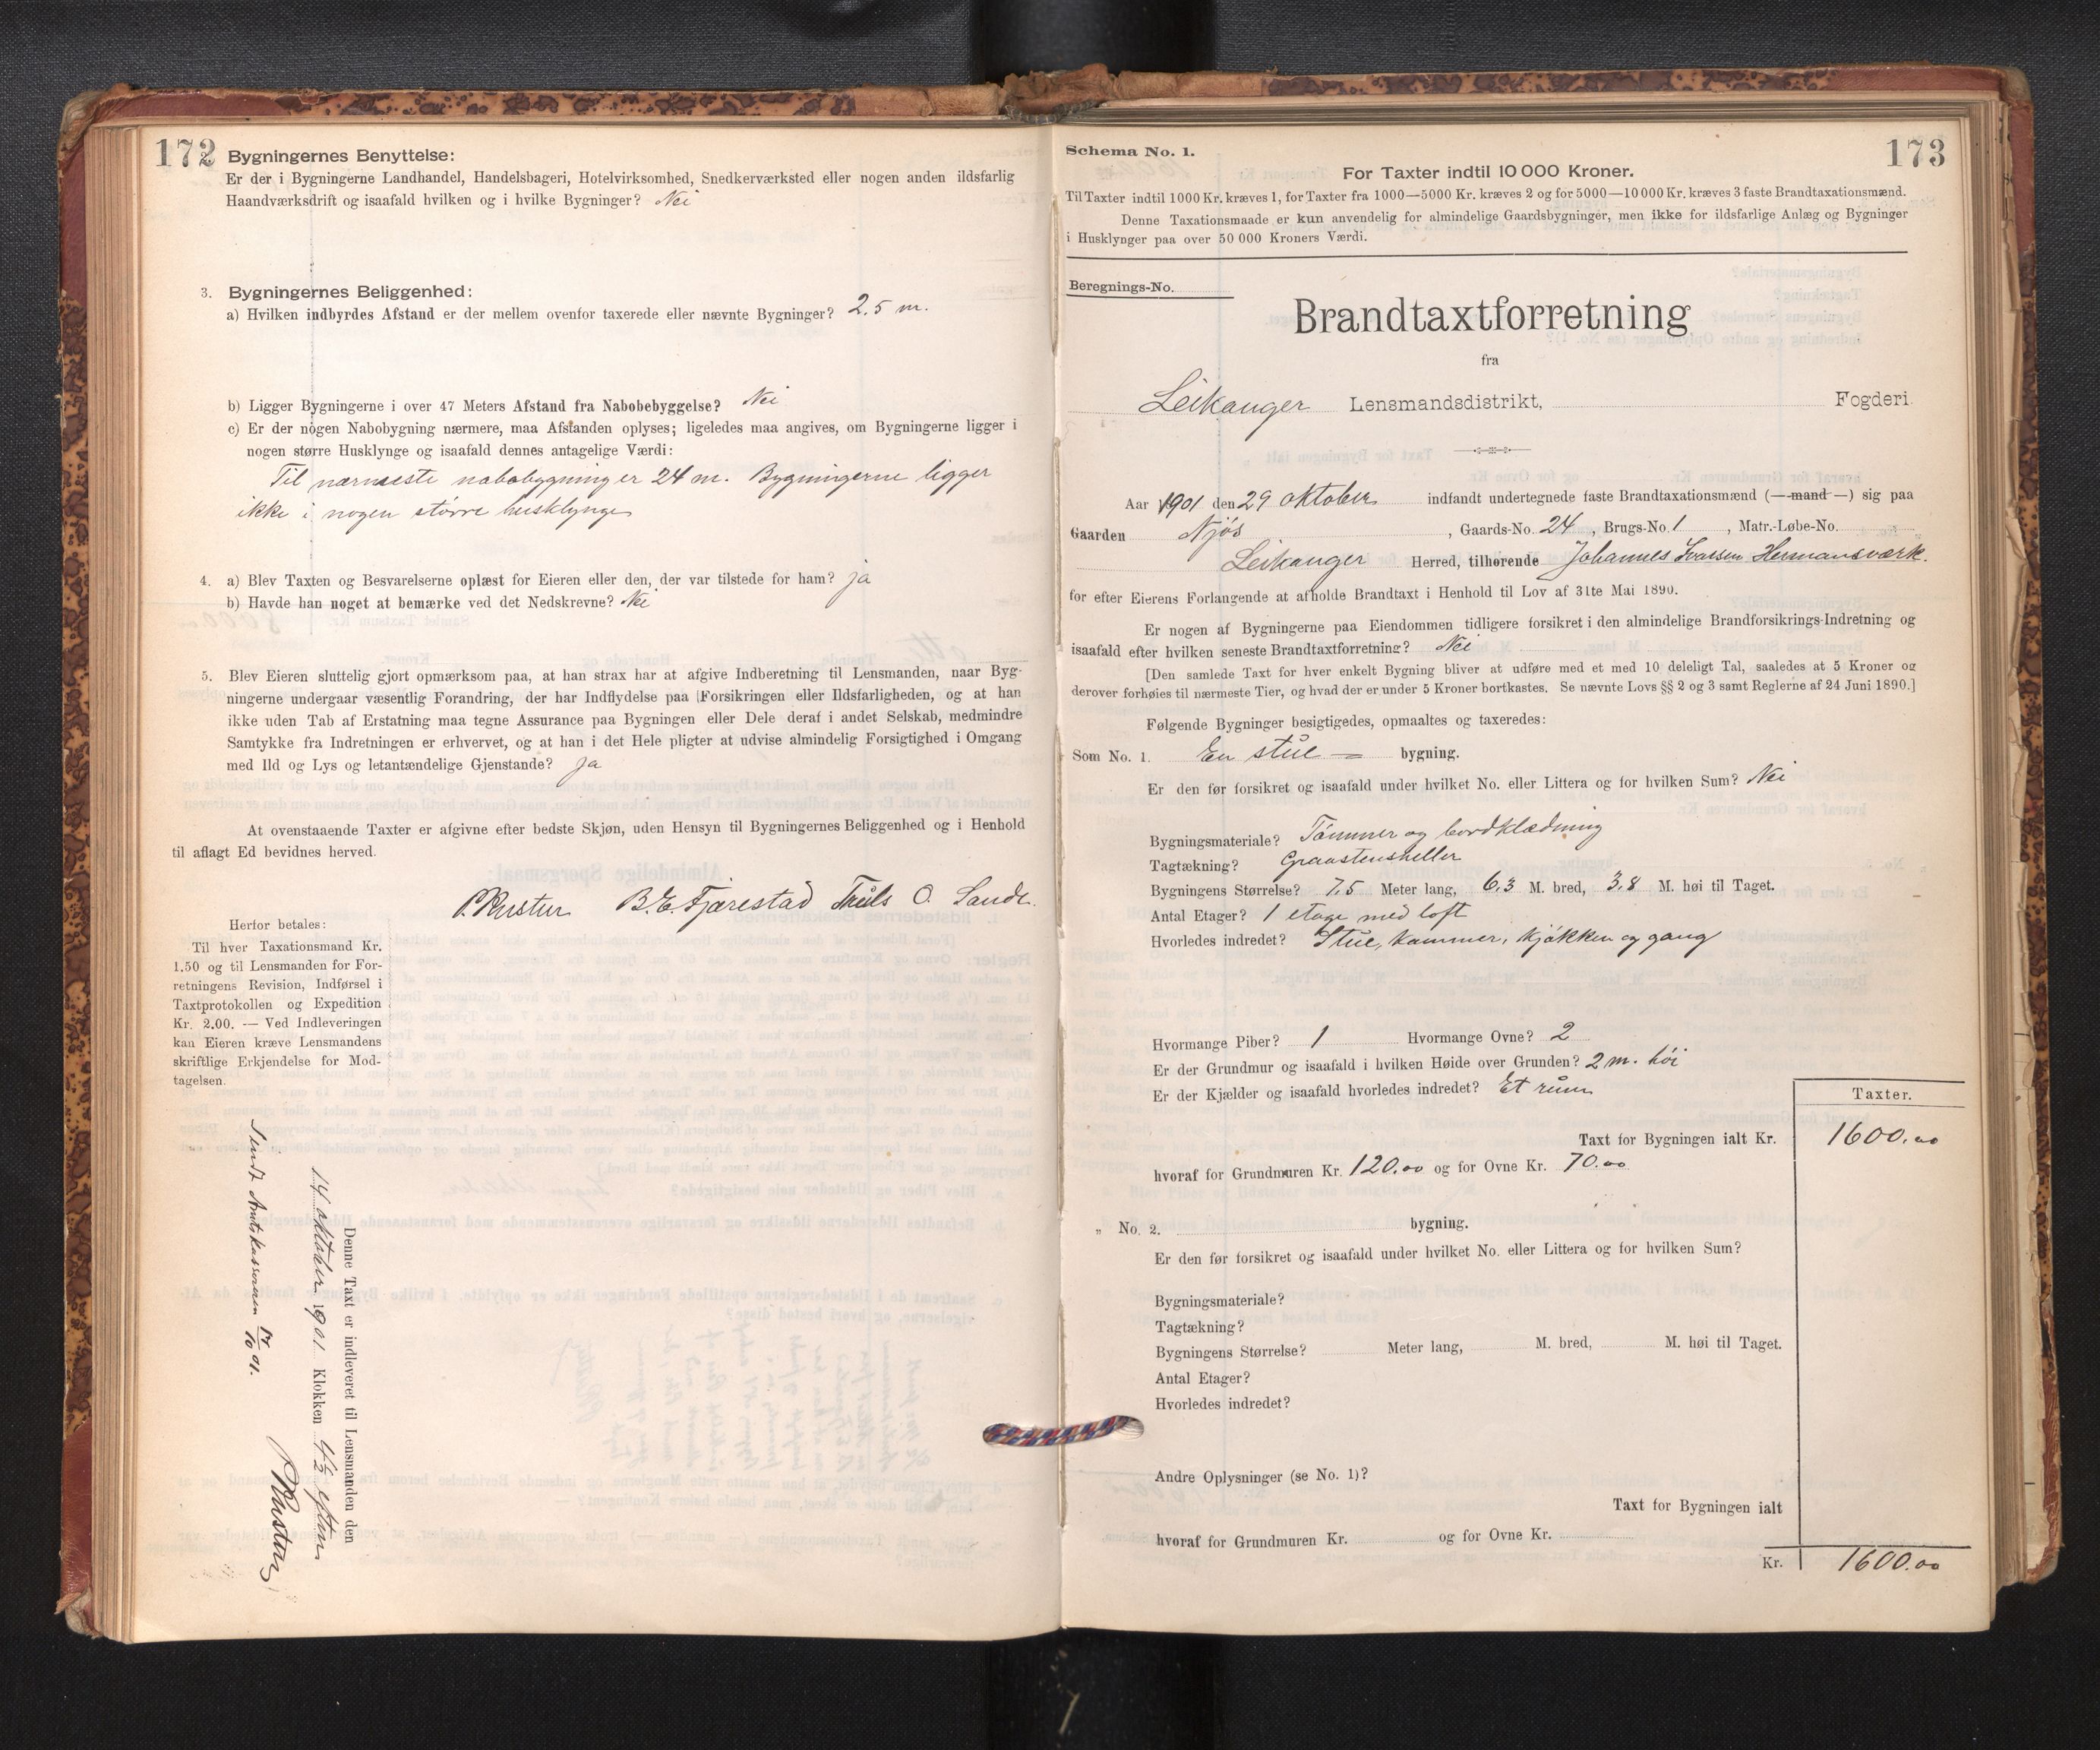 172
Bygningernes Benyttelse:
Er der i Bygningerne Landhandel, Handelsbageri, Hotelvirksomhed, Snedkerværksted eller nogen anden ildsfarlig
Haandværksdrift og isaafald hvilken og i hvilke Bygninger? Nei
3. Bygningernes Beliggenhed:
a) Hvilken indbyrdes Afstand er der mellem ovenfor taxerede eller nævnte Bygninger? 2.5 m.
b) Ligger Bygningerne i over 47 Meters Afstand fra Nabobebyggelse? Nei
c) Er der nogen Nabobygning nærmere, maa Afstanden oplyses; ligeledes maa angives, om Bygningerne ligger i
nogen større Husklynge og isaafald dennes antagelige Værdi:
Til nærmeste nabobygning er 24 m. Bygningerne ligger
ikke i nogen større husklynge
4. a) Blev Taxten og Besvarelserne oplæst for Eieren eller den, der var tilstede for ham? ja
b) Havde han noget at bemærke ved det Nedskrevne? Nei
5. Blev Eieren sluttelig gjort opmærksom paa, at han strax har at afgive Indberetning til Lensmanden, naar Byg-
ningerne undergaar væsentlig Forandring, der har Indflydelse paa Forsikringen eller Ildsfarligheden, og at han
ikke uden Tab af Erstatning maa tegne Assurance paa Bygningen eller Dele deraf i andet Selskab, medmindre
Samtykke fra Indretningen er erhvervet, og at han i det Hele pligter at udvise almindelig Forsigtighed i Omgang
med Ild og Lys og letantændelige Gjenstande? ja
At ovenstaaende Taxter er afgivne efter bedste Skjøn, uden Hensyn til Bygningernes Beliggenhed og i Henhold
til aflagt Ed bevidnes herved.
B. E. Fjærestad Truls O. Sande
Herfor betales:
Til hver Taxationsmand Kr.
1.50 og til Lensmanden for For-
retningens Revision, Indførsel i
Taxtprotokollen og Expedition
Kr. 2.00. — Ved Indleveringen
kan Eieren kræve Lensmandens
skriftlige Erkjendelse for Mod-
tagelsen.
Denne Taxt er indleveret til Lensmanden den
14 oktober 1901 Klokken 4½ eftm
Sendt Amtskassereren 14/10 01.
173
Schema No. 1.
For Taxter indtil 10 000 Kroner.
Til Taxter indtil 1000 Kr. kræves 1, for Taxter fra 1000—5000 Kr. kræves 2 og for 5000—10 000 Kr. kræves 3 faste Brandtaxationsmænd.
Denne Taxationsmaade er kun anvendelig for almindelige Gaardsbygninger, men ikke for ildsfarlige Anlæg og Bygninger
i Husklynger paa over 50 000 Kroners Værdi.
Beregnings-No.
Brandtaxtforretning
fra
Leikanger Lensmandsdistrikt, Fogderi
Aar 1901 den 29 oktober indfandt undertegnede faste Brandtaxationsmænd (—mand—) sig paa
Gaarden Njøs, Gaards-No. 24, Brugs-No. 1, Matr.-Løbe-No.
Leikanger Herred, tilhørende Johannes Ivarsen Hermansværk.
for efter Eierens Forlangende at afholde Brandtaxt i Henhold til Lov af 31te Mai 1890.
Er nogen af Bygningerne paa Eiendommen tidligere forsikret i den almindelige Brandforsikrings-Indretning og
isaafald efter hvilken seneste Brandtaxtforretning? Nei
[Den samlede Taxt for hver enkelt Bygning bliver at udføre med et med 10 deleligt Tal, saaledes at 5 Kroner og
derover forhøies til nærmeste Tier, og hvad der er under 5 Kroner bortkastes. Se nævnte Lovs §§ 2 og 3 samt Reglerne af 24 Juni 1890.]
Følgende Bygninger besigtigedes, opmaaltes og taxeredes:
Som No. 1. En stue = bygning.
Er den før forsikret og isaafald under hvilket No. eller Littera og for hvilken Sum? Nei
Bygningsmateriale? Tømmer og bordklædning
Tagtækning? Graastensheller
Bygningens Størrelse? 7,5 Meter lang, 6,3 M. bred, 3,8 M. høi til Taget.
Antal Etager? 1 etage med loft
Hvorledes indredet? Stue, kammer, kjøkken og gang
Hvormange Piber? 1 Hvormange Ovne? 2
Er der Grundmur og isaafald i hvilken Høide over Grunden? 2 m. høi
Er der Kjælder og isaafald hvorledes indredet? Et rum
Taxter.
Taxt for Bygningen ialt Kr. 1600.00
hvoraf for Grundmuren Kr. 120.00 og for Ovne Kr. 70.00
„ No. 2. bygning.
Er den før forsikret og isaafald under hvilket No. eller Littera og for hvilken Sum?
Bygningsmateriale?
Tagtækning?
Bygningens Størrelse? Meter lang, M. bred, M. høi til Taget.
Antal Etager?
Hvorledes indredet?
Andre Oplysninger (se No. 1)?
Taxt for Bygningen ialt
hvoraf for Grundmuren Kr. og for Ovne Kr.
Kr. 1600.00